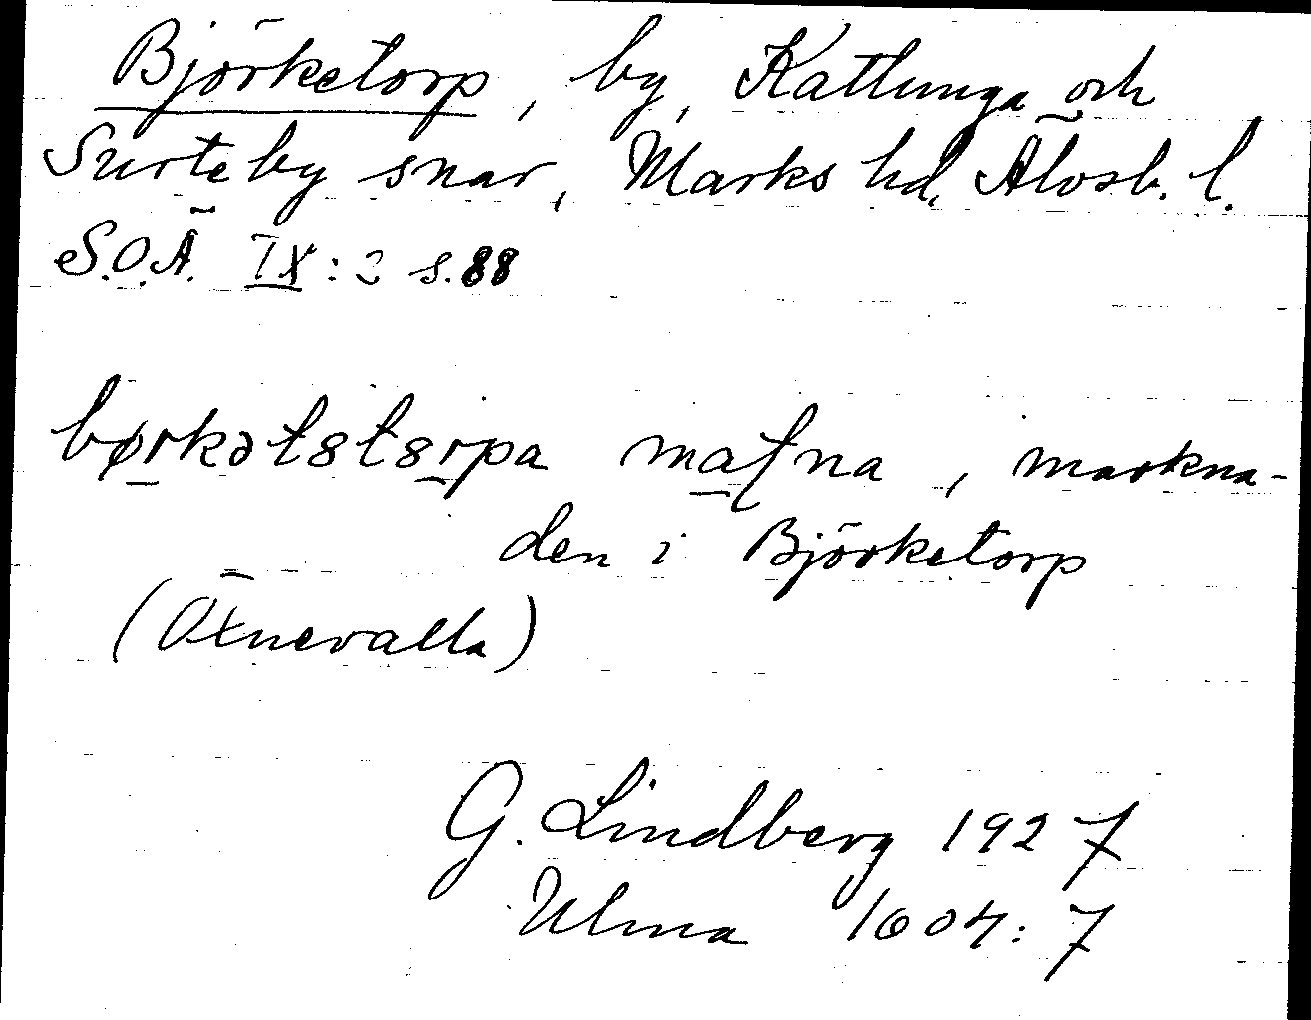 Björketorp, by, Kattunga och
Surteby snar, Marks hd, Älvsb. l.
S.O.Ä. IX: 2 s. 88
børkətstsrpa mafna, markna-
den i Björketorp
(Öxnevalla)
G. Lindberg 1927
Ulma 1604: 7